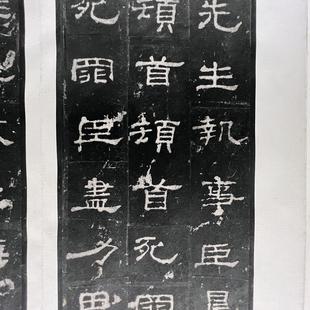 先生執事臣晨
頓首頓首死罪
死罪臣盡力思